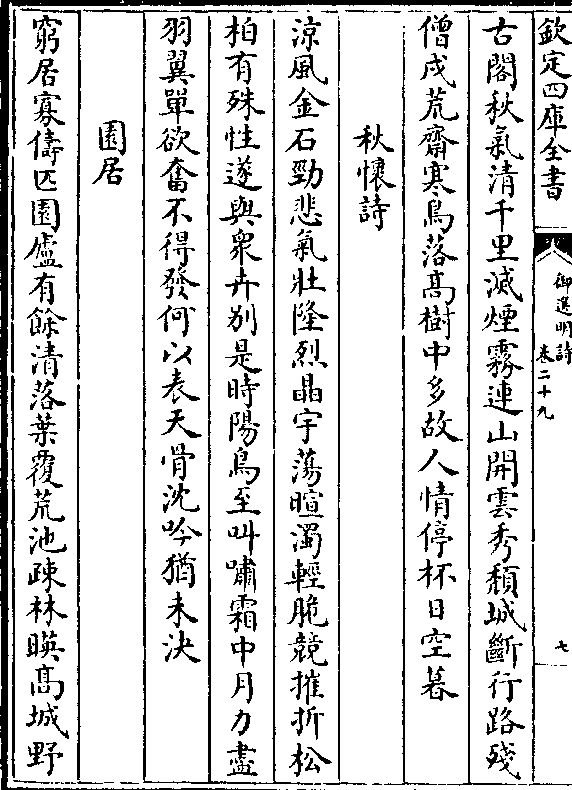 欽定四庫全書
御選明詩
卷二十九
七
古閣秋氣清千里滅煙霧連山開雲秀頽城斷行路殘
僧戍荒齋寒鳥落髙樹中多故人情停杯日空暮
秋懷詩
涼風金石勁悲氣壯隆烈晶宇蕩暄濁輕脆競摧折松
柏有殊性遂與衆卉别是時陽鳥至叫嘯霜中月力盡
羽翼單欲奮不得發何以表天骨沈吟猶未決
園居
窮居寡儔匹園廬有餘清落葉覆荒池疎林暎髙城野